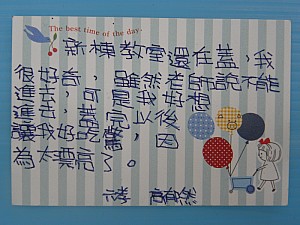 The best time of the day.
新棟教室還在蓋，我
很好奇，雖然老師說不能
進去，可是我好想
進去，蓋完以後
讓我好吃驚，因
為太漂亮了。